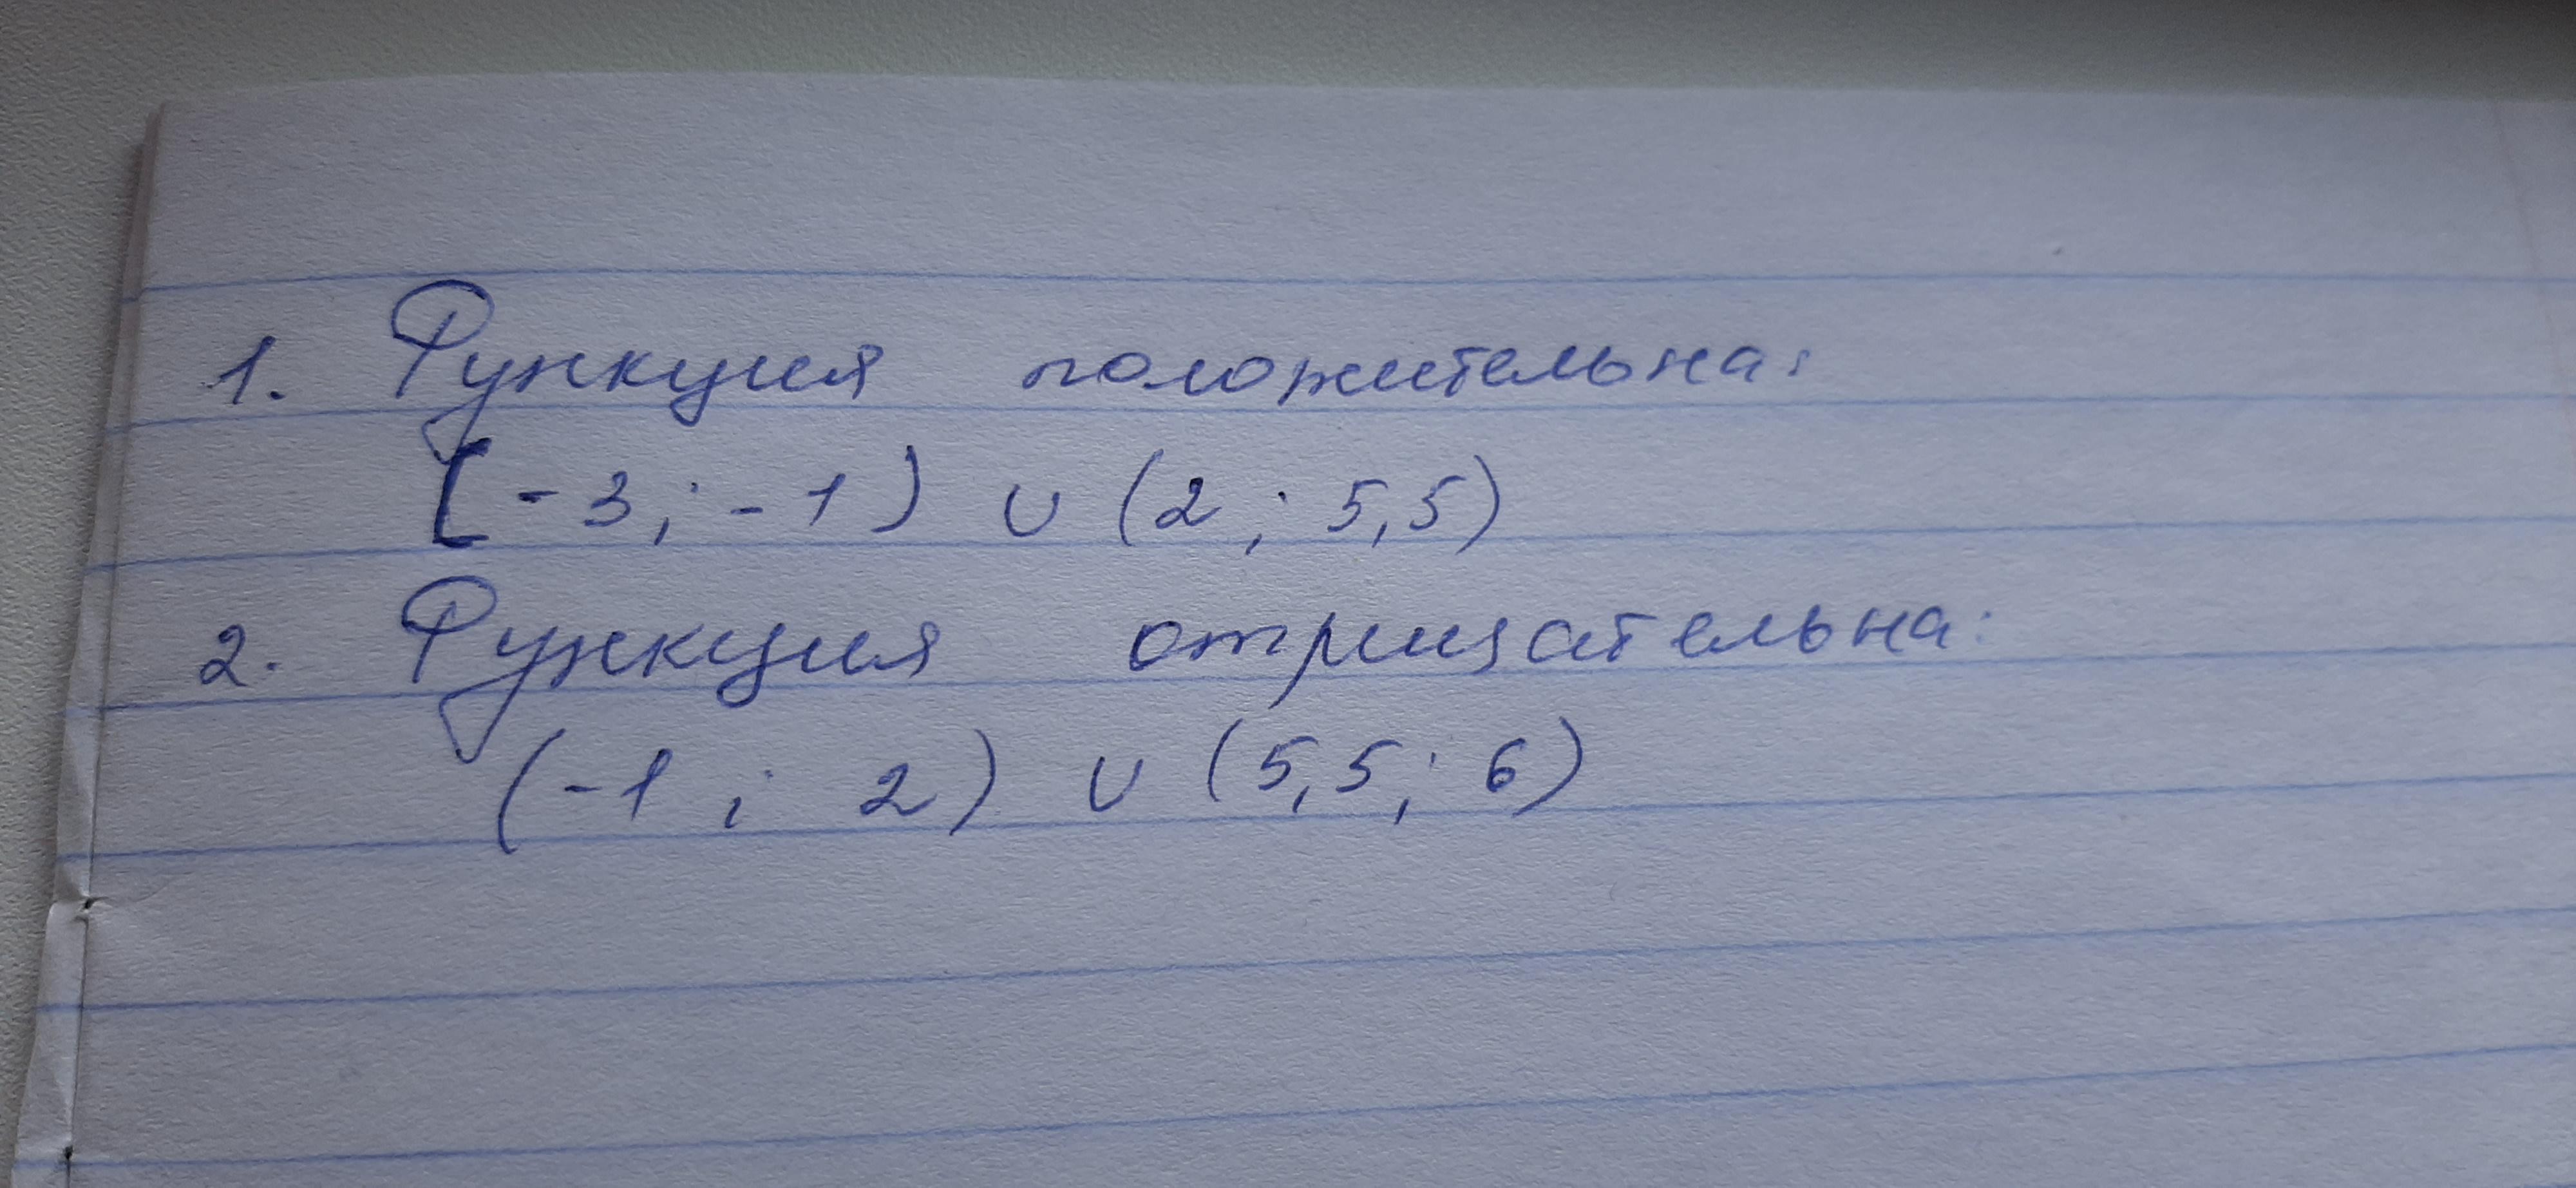 1. Функция положительна:
[-3; -1) ∪ (2; 5,5)
2. Функция отрицательна:
(-1; 2) ∪ (5,5; 6)